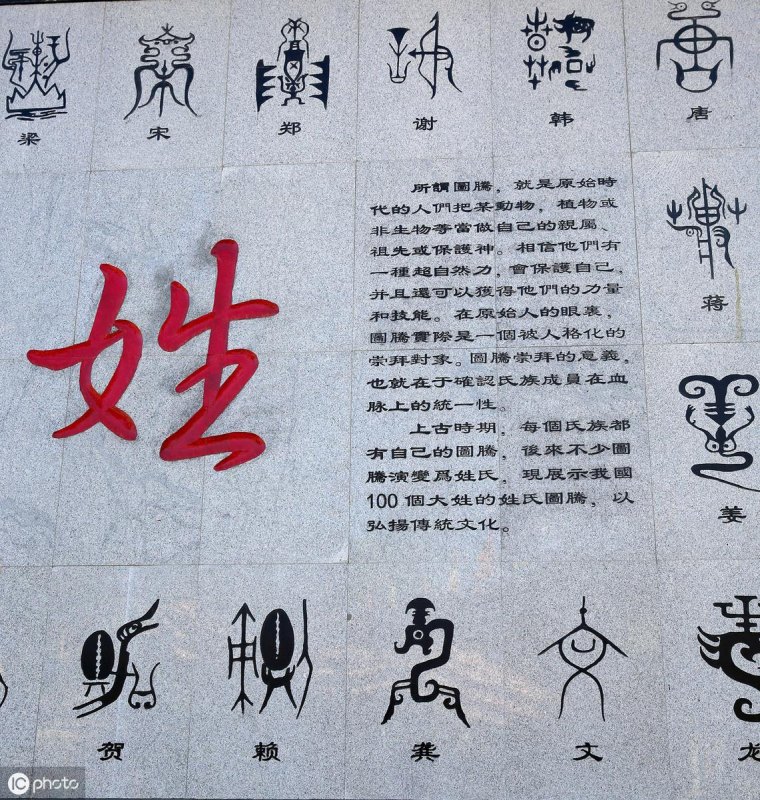 梁 宋 郑 谢 韩 唐
所謂圖騰，就是原始時
代的人們把某動物，植物或
非生物等當做自己的親属、
祖先或保護神。相信他們有
一種超自然力，會保護自己，
并且還可以獲得他們的力量
和技能。在原始人的眼裏，
圖騰實際是一個被人格化的
崇拜對象。圖騰崇拜的意義，
也就在于確認氏族成員在血
脉上的統一性。
上古時期，每個氏族都
有自己的圖騰，後來不少圖
騰演變爲姓氏，現展示我國
100個大姓的姓氏圖騰，以
弘揚傳統文化。
姓
蒋
姜
贺 赖 龚 文 龙
IC photo